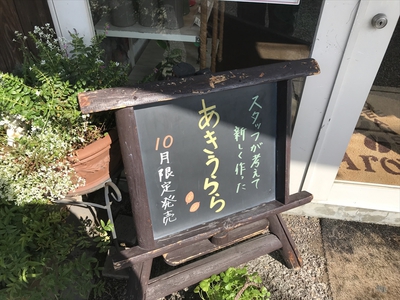 スタッフが考えて
新しく作った
あきうらら
10月限定発売
Aro